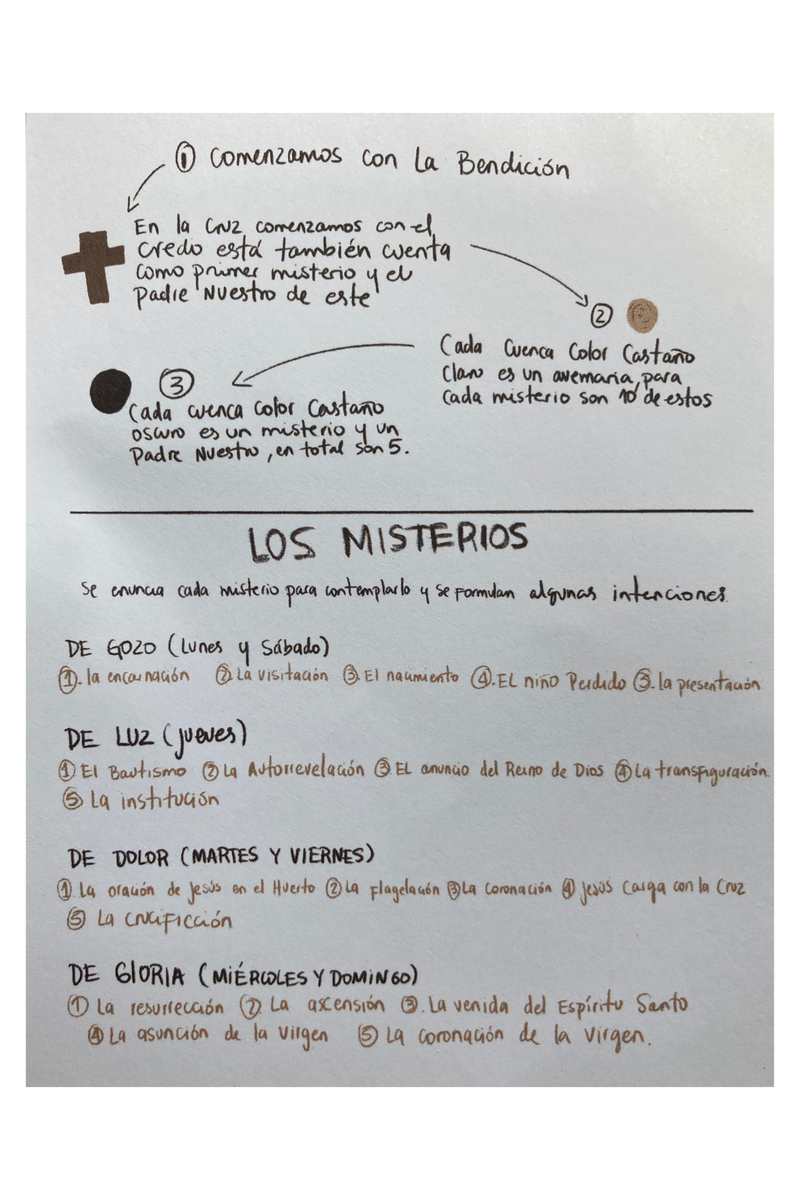 ① Comenzamos con La Bendición
En la Cruz comenzamos con el
credo está también cuenta
como primer misterio y el
Padre Nuestro de este
②
Cada Cuenca Color Castaño
Claro es un avemaría, para
cada misterio son 10 de estos
③
Cada cuenca color Castaño
oscuro es un misterio y un
Padre Nuestro, en total son 5.
LOS MISTERIOS
Se enuncia cada misterio para contemplarlo y se formulan algunas intenciones.
DE GOZO (Lunes y Sábado)
①. la encarnación ②. La Visitación ③. El nacimiento ④. EL niño Perdido ⑤. la presentación
DE LUZ (jueves)
① El Bautismo ② La Autorrevelación ③ EL anuncio del Reino de Dios ④ La transfiguración.
⑤ La institución
DE DOLOR (MARTES Y VIERNES)
①. La oración de Jesús en el Huerto ② La Flagelación ③ La Coronación ④ Jesús Carga con la Cruz
⑤ La crucificción
DE GlORIA (MIÉRCOLES Y DOMINGO)
① La resurrección ②. La ascensión ③. La venida del Espíritu Santo
④ La asunción de la Virgen ⑤ La coronación de la Virgen.